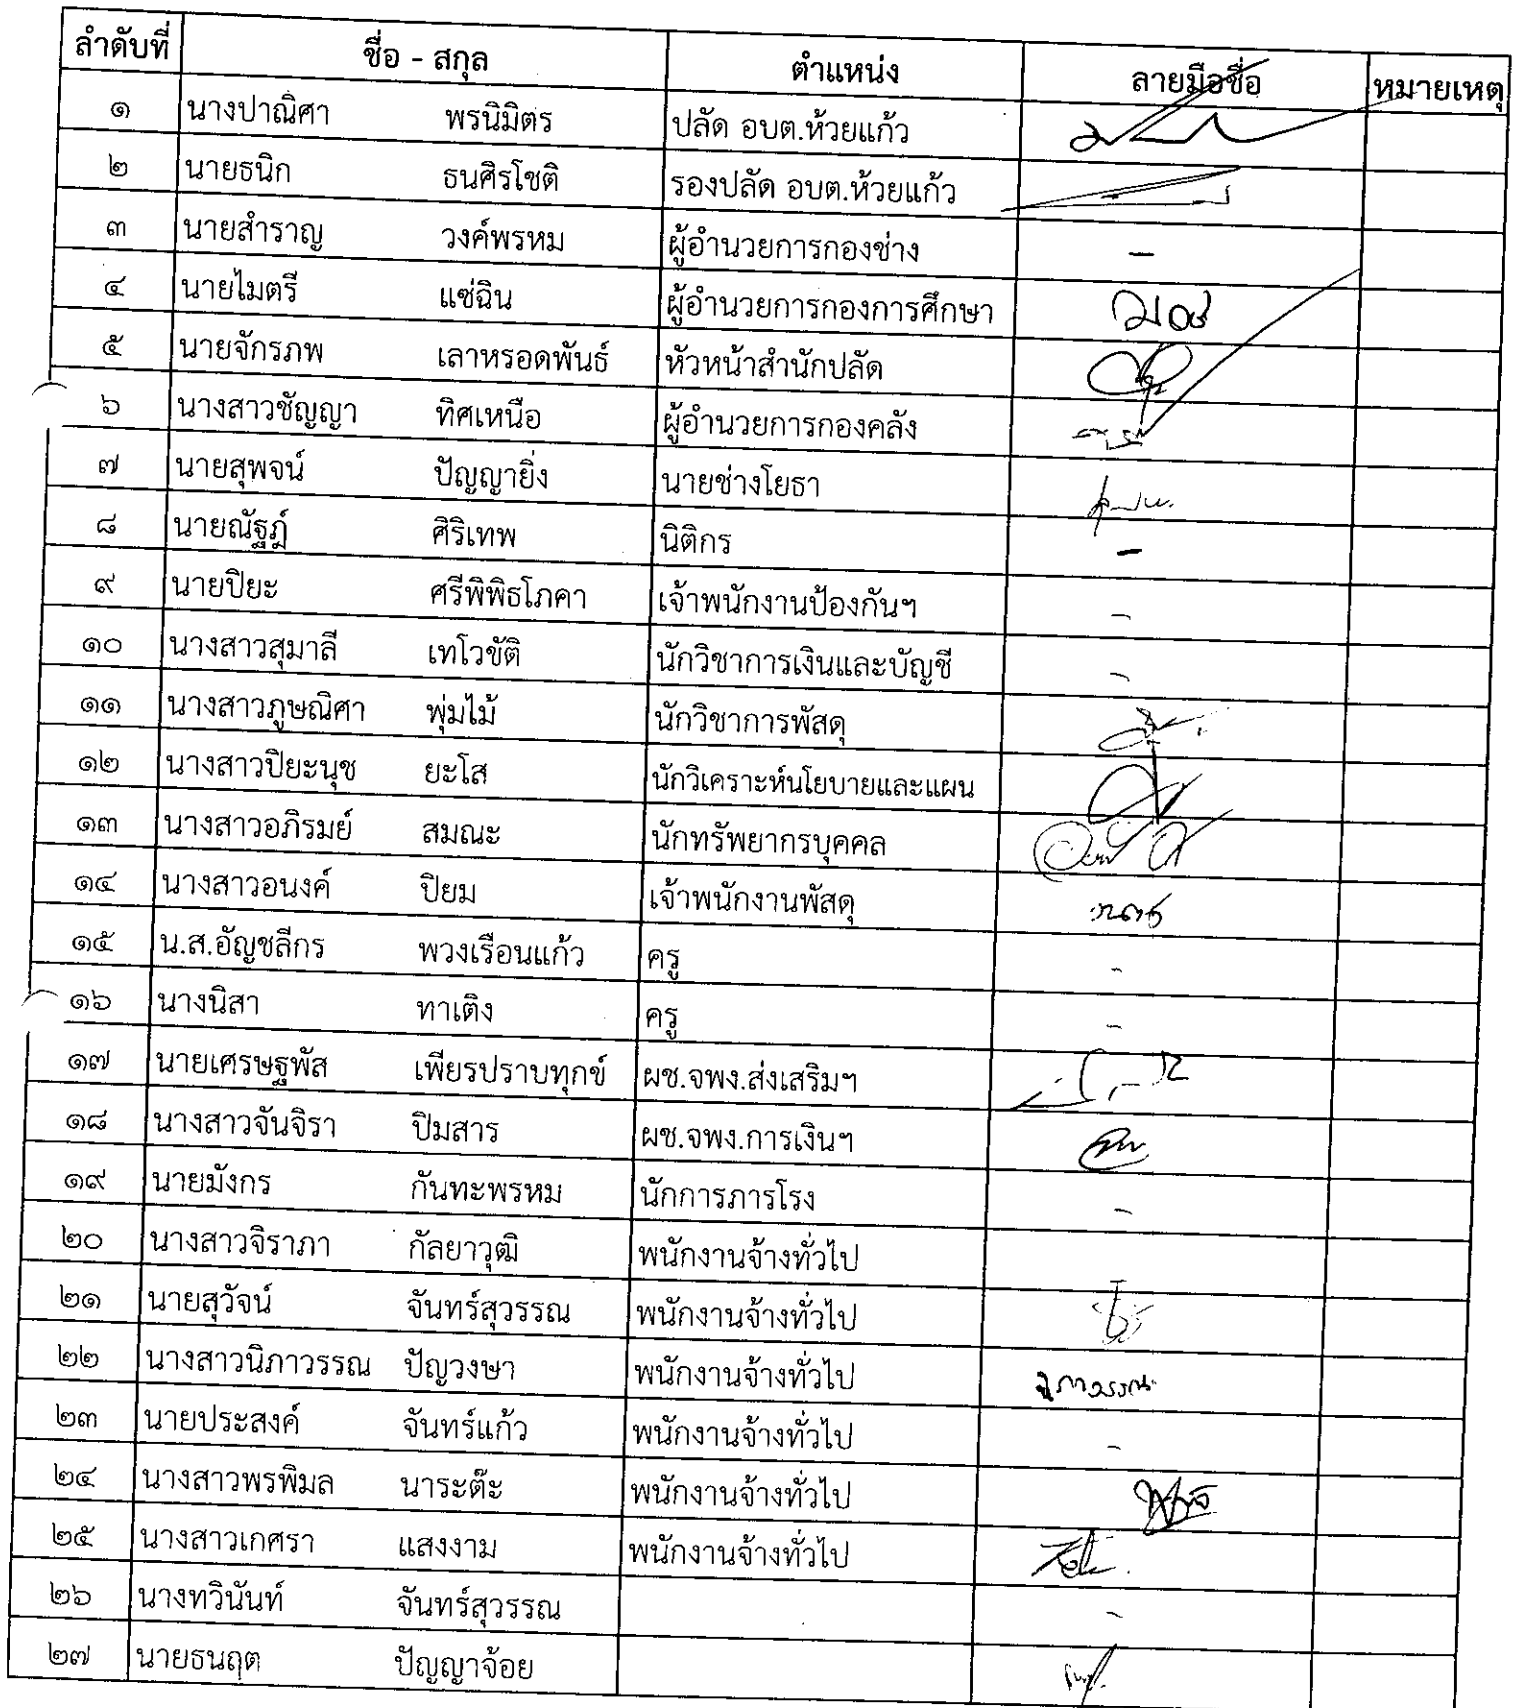 ลำดับที่ ชื่อ - สกุล ตำแหน่ง ลายมือชื่อ หมายเหตุ
๑ นางปาณิศา พรนิมิตร ปลัด อบต.ห้วยแก้ว
๒ นายธนิก ธนศิรโชติ รองปลัด อบต.ห้วยแก้ว
๓ นายสำราญ วงค์พรหม ผู้อำนวยการกองช่าง -
๔ นายไมตรี แซ่ฉิน ผู้อำนวยการกองการศึกษา
๕ นายจักรภพ เลาหรอดพันธ์ หัวหน้าสำนักปลัด
๖ นางสาวชัญญา ทิศเหนือ ผู้อำนวยการกองคลัง
๗ นายสุพจน์ ปัญญายิ่ง นายช่างโยธา
๘ นายณัฐฎ์ ศิริเทพ นิติกร -
๙ นายปิยะ ศรีพิพิธโภคา เจ้าพนักงานป้องกันฯ -
๑๐ นางสาวสุมาลี เทโวขัติ นักวิชาการเงินและบัญชี -
๑๑ นางสาวภูษณิศา พุ่มไม้ นักวิชาการพัสดุ
๑๒ นางสาวปิยะนุช ยะโส นักวิเคราะห์นโยบายและแผน
๑๓ นางสาวอภิรมย์ สมณะ นักทรัพยากรบุคคล
๑๔ นางสาวอนงค์ ปิยม เจ้าพนักงานพัสดุ
๑๕ น.ส.อัญชลีกร พวงเรือนแก้ว ครู -
๑๖ นางนิสา ทาเติง ครู -
๑๗ นายเศรษฐพัส เพียรปราบทุกข์ ผช.จพง.ส่งเสริมฯ
๑๘ นางสาวจันจิรา ปิมสาร ผช.จพง.การเงินฯ
๑๙ นายมังกร กันทะพรหม นักการภารโรง -
๒๐ นางสาวจิราภา กัลยาวุฒิ พนักงานจ้างทั่วไป
๒๑ นายสุวัจน์ จันทร์สุวรรณ พนักงานจ้างทั่วไป
๒๒ นางสาวนิภาวรรณ ปัญวงษา พนักงานจ้างทั่วไป นิภาวรรณ
๒๓ นายประสงค์ จันทร์แก้ว พนักงานจ้างทั่วไป -
๒๔ นางสาวพรพิมล นาระต๊ะ พนักงานจ้างทั่วไป
๒๕ นางสาวเกศรา แสงงาม พนักงานจ้างทั่วไป
๒๖ นางทวินันท์ จันทร์สุวรรณ -
๒๗ นายธนฤต ปัญญาจ้อย